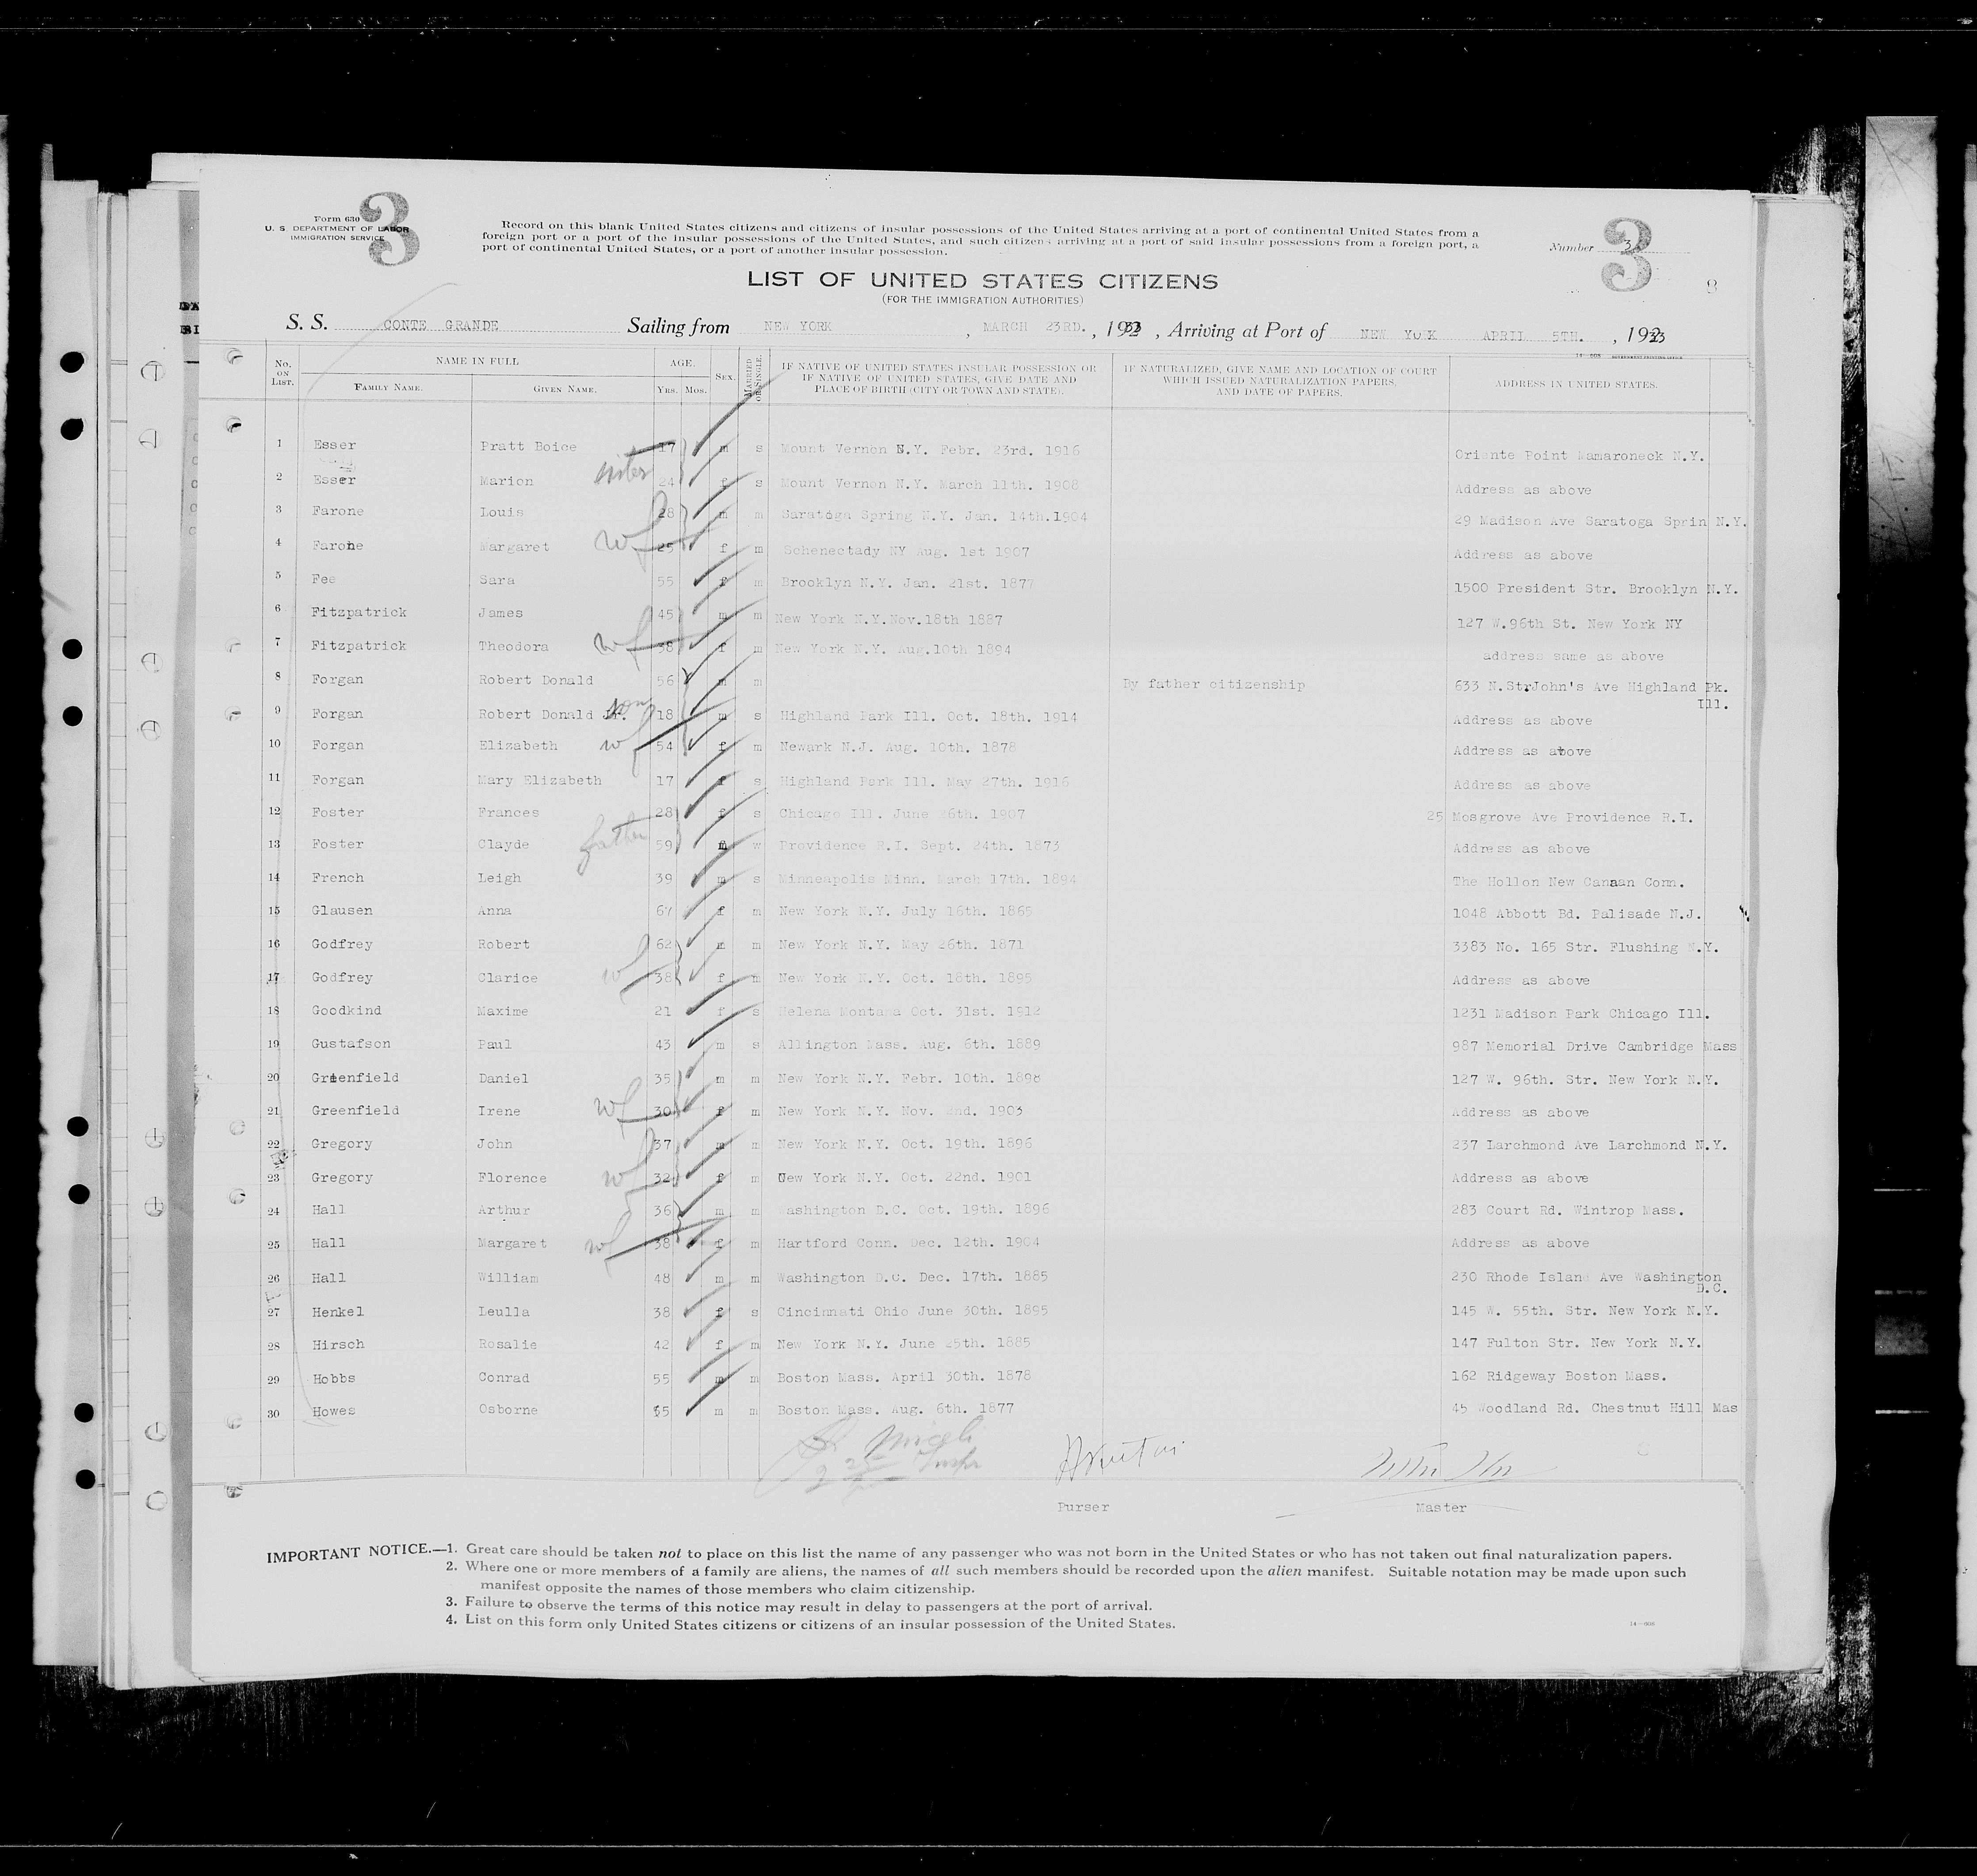 Form 630
U. S. DEPARTMENT OF LABOR
IMMIGRATION SERVICE
3
Record on this blank United States citizens and citizens of insular possessions of the United States arriving at a port of continental United States from a
foreign port or a port of the insular possessions of the United States, and such citizens arriving at a port of said insular possessions from a foreign port, a
port of continental United States, or a port of another insular possession.
Number 3
3
8
LIST OF UNITED STATES CITIZENS
(FOR THE IMMIGRATION AUTHORITIES)
S. S. CONTE GRANDE Sailing from NEW YORK , MARCH 23RD. , 1933 , Arriving at Port of NEW YORK APRIL 5TH. , 1933
No. ON LIST. NAME IN FULL FAMILY NAME. GIVEN NAME. AGE. YRS. MOS. SEX. MARRIED OR SINGLE. IF NATIVE OF UNITED STATES INSULAR POSSESSION OR IF NATIVE OF UNITED STATES, GIVE DATE AND PLACE OF BIRTH (CITY OR TOWN AND STATE). IF NATURALIZED, GIVE NAME AND LOCATION OF COURT WHICH ISSUED NATURALIZATION PAPERS, AND DATE OF PAPERS. ADDRESS IN UNITED STATES.
1 Esser Pratt Boice 17 m s Mount Vernon N.Y. Febr. 23rd. 1916 Oriente Point Mamaroneck N.Y.
2 Esser Marion sister 24 f s Mount Vernon N.Y. March 11th. 1908 Address as above
3 Farone Louis 28 m m Saratoga Spring N.Y. Jan. 14th.1904 29 Madison Ave Saratoga Sprin N.Y.
4 Farone Margaret wf 25 f m Schenectady NY Aug. 1st 1907 Address as above
5 Fee Sara 55 f m Brooklyn N.Y. Jan. 21st. 1877 1500 President Str. Brooklyn N.Y.
6 Fitzpatrick James 45 m m New York N.Y.Nov.18th 1887 127 W.96th St. New York NY
7 Fitzpatrick Theodora wf 38 f m New York N.Y. Aug.10th 1894 address same as above
8 Forgan Robert Donald 56 m m By father citizenship 633 N.Str.John's Ave Highland Pk. Ill.
9 Forgan Robert Donald Jr. son 18 m s Highland Park Ill. Oct. 18th. 1914 Address as above
10 Forgan Elizabeth wf 54 f m Newark N.J. Aug. 10th. 1878 Address as above
11 Forgan Mary Elizabeth 17 f s Highland Park Ill. May 27th. 1916 Address as above
12 Foster Frances 28 f s Chicago Ill. June 26th. 1907 25 Mosgrove Ave Providence R.I.
13 Foster Clayde father 59 m w Providence R.I. Sept. 24th. 1873 Address as above
14 French Leigh 39 m s Minneapolis Minn. March 17th. 1894 The Hollon New Canaan Conn.
15 Glausen Anna 67 f m New York N.Y. July 16th. 1865 1048 Abbott Bd. Palisade N.J.
16 Godfrey Robert 62 m m New York N.Y. May 26th. 1871 3383 No. 165 Str. Flushing N.Y.
17 Godfrey Clarice wf 38 f m New York N.Y. Oct. 18th. 1895 Address as above
18 Goodkind Maxime 21 f s Helena Montana Oct. 31st. 1912 1231 Madison Park Chicago Ill.
19 Gustafson Paul 43 m s Allington Mass. Aug. 6th. 1889 987 Memorial Drive Cambridge Mass
20 Greenfield Daniel 35 m m New York N.Y. Febr. 10th. 1898 127 W. 96th. Str. New York N.Y.
21 Greenfield Irene wf 30 f m New York N.Y. Nov. 2nd. 1903 Address as above
22 Gregory John 37 m m New York N.Y. Oct. 19th. 1896 237 Larchmond Ave Larchmond N.Y.
23 Gregory Florence wf 32 f m New York N.Y. Oct. 22nd. 1901 Address as above
24 Hall Arthur 36 m m Washington D.C. Oct. 19th. 1896 283 Court Rd. Wintrop Mass.
25 Hall Margaret wf 38 f m Hartford Conn. Dec. 12th. 1904 Address as above
26 Hall William 48 m m Washington D.C. Dec. 17th. 1885 230 Rhode Island Ave Washington D.C.
27 Henkel Leulla 38 f s Cincinnati Ohio June 30th. 1895 145 W. 55th. Str. New York N.Y.
28 Hirsch Rosalie 42 f m New York N.Y. June 25th. 1885 147 Fulton Str. New York N.Y.
29 Hobbs Conrad 55 m m Boston Mass. April 30th. 1878 162 Ridgeway Boston Mass.
30 Howes Osborne 55 m m Boston Mass. Aug. 6th. 1877 45 Woodland Rd. Chestnut Hill Mas
Purser
Master
IMPORTANT NOTICE.—1. Great care should be taken not to place on this list the name of any passenger who was not born in the United States or who has not taken out final naturalization papers.
2. Where one or more members of a family are aliens, the names of all such members should be recorded upon the alien manifest. Suitable notation may be made upon such
manifest opposite the names of those members who claim citizenship.
3. Failure to observe the terms of this notice may result in delay to passengers at the port of arrival.
4. List on this form only United States citizens or citizens of an insular possession of the United States.